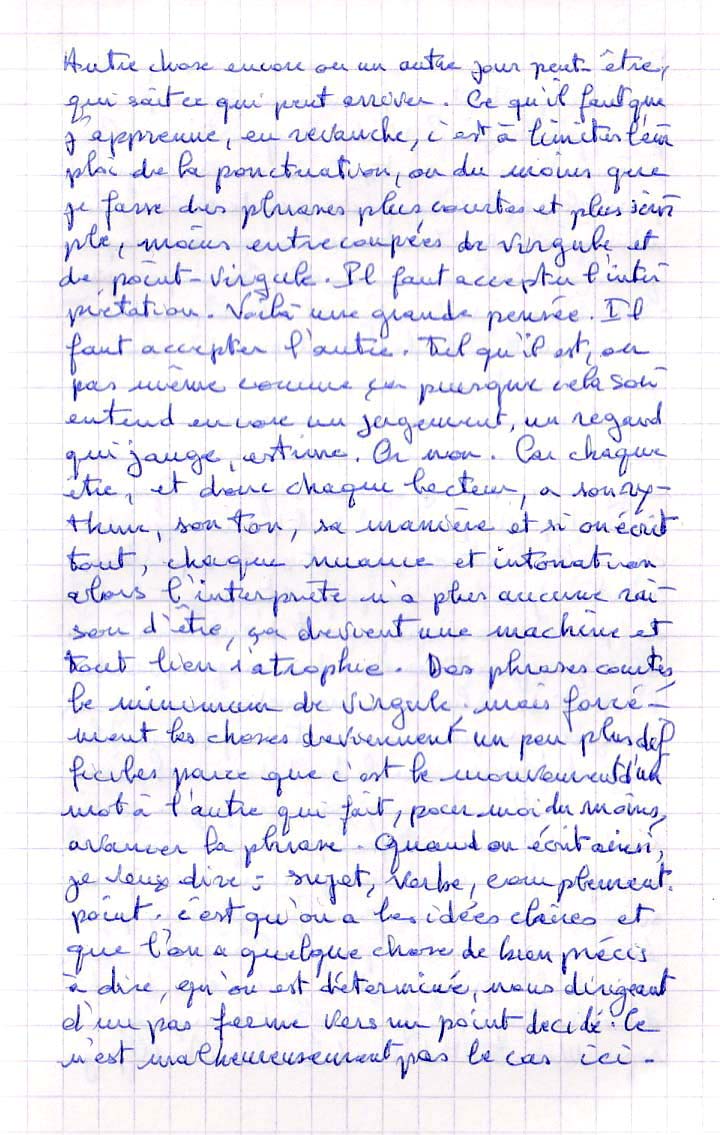 Autre chose encore ou un autre jour peut-être,
qui sait ce qui peut arriver. Ce qu'il faut que
j'apprenne, en revanche, c'est à limiter l'em
ploi de la ponctuation, ou du moins que
je fasse des phrases plus courtes et plus sim
ple, moins entrecoupées de virgule et
de point-virgule. Il faut accepter l'inter
prétation. Voilà une grande pensée. Il
faut accepter l'autre. Tel qu'il est, ou
pas même comme ça puisque cela sous
entend encore un jugement, un regard
qui jauge, estime. Or non. Car chaque
être, et donc chaque lecteur, a son ry-
thme, son ton, sa manière et si on écrit
tout, chaque nuance et intonation
alors l'interprète n'a plus aucune rai-
son d'être, ça devient une machine et
tout lien s'atrophie. Des phrases courtes,
le minimum de virgule. mais forcé-
ment les choses deviennent un peu plus dif
ficiles parce que c'est le mouvement d'un
mot à l'autre qui fait, pour moi du moins,
avancer la phrase. Quand on écrit ainsi,
je veux dire : sujet, verbe, complement.
point. c'est qu'on a les idées claires et
que l'on a quelque chose de bien précis
à dire, qu'on est déterminé, nous dirigeant
d'un pas ferme vers un point decidé. Ce
n'est malheureusement pas le cas ici.